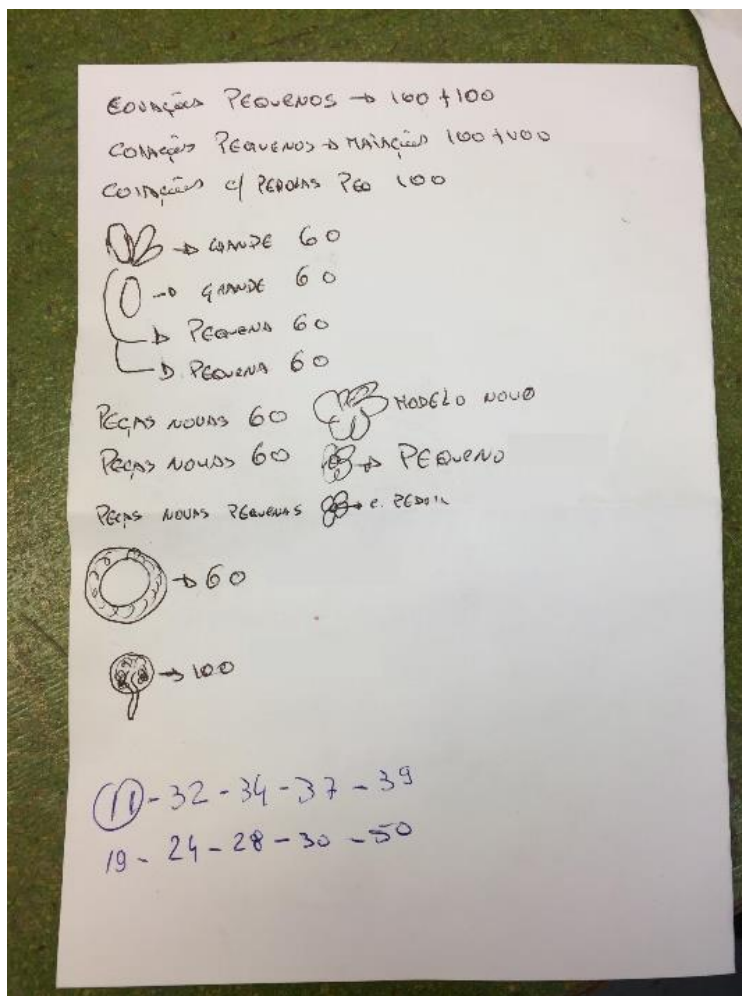 CORAÇÕES PEQUENOS → 100 + 100
CORAÇÕES PEQUENOS → 100 + 100
CORAÇÕES C/ PEROLAS PEQ 100
→ GRANDE 60
→ GRANDE 60
→ PEQUENA 60
→ PEQUENA 60
PEÇAS NOVAS 60 MODELO NOVO
PEÇAS NOVAS 60 → PEQUENO
PEÇAS NOVAS PEQUENAS → C.
→ 60
→ 100
11 - 32 - 34 - 37 - 39
19 - 24 - 28 - 30 - 50